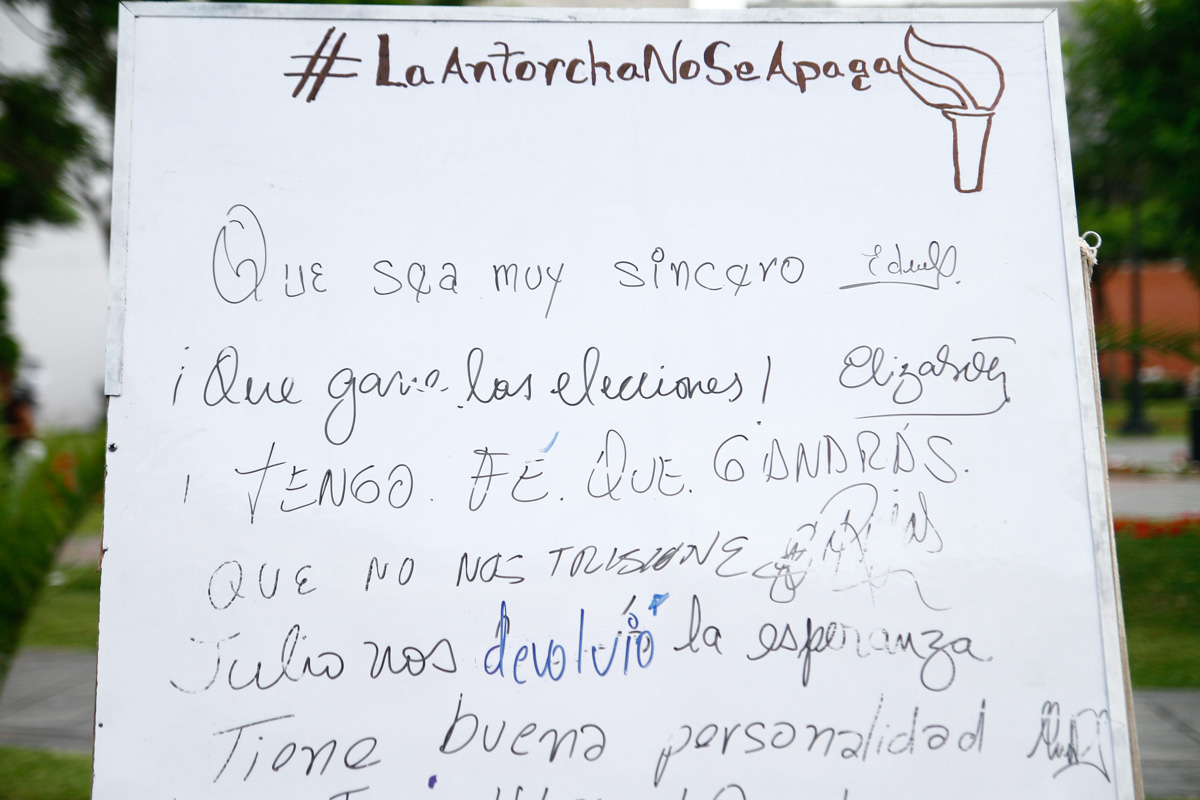 #LaAntorchaNoSeApaga
Que sea muy sincero
¡Que gane las elecciones! Elizabeth
¡ TENGO. FÉ. QUE. GANARÁS.
QUE NO NOS
Julio nos devolvió la esperanza
Tiene buena personalidad